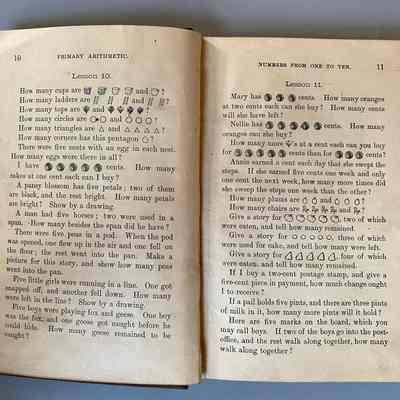 10 PRIMARY ARITHMETIC.
Lesson 10.
How many cups are and ?
How many ladders are and ?
How many tops are and ?
How many circles are and ?
How many triangles are and ?
How many corners has this pentagon ?
There were five nests with an egg in each nest.
How many eggs were there in all?
I have cents. How many
cakes at one cent each can I buy?
A pansy blossom has five petals; two of them
are black, and the rest bright. How many petals
are bright? Show by a drawing.
A man had five horses; two were used in a
span. How many besides the span did he have?
There were five peas in a pod. When the pod
was opened, one flew up in the air and one fell on
the floor; the rest went into the pan. Make a
picture for this story, and show how many peas
went into the pan.
Five little girls were running in a line. One got
snapped off, and another fell down. How many
were left in the line? Show by a drawing.
Five boys were playing fox and geese. One boy
was the fox, and one goose got caught before he
could hide. How many geese remained to be
caught?
NUMBERS FROM ONE TO TEN. 11
Lesson 11.
Mary has cents. How many oranges
at two cents each can she buy? How many cents
will she have left?
Nellie has cents. How many
oranges can she buy?
How many more at a cent each can you buy
for cents than for cents?
Annie earned a cent each day that she swept the
steps. If she earned five cents one week and only
one cent the next week, how many more times did
she sweep the steps one week than the other?
How many plums are and ?
How many chairs are and ?
Give a story for , two of which
were eaten, and tell how many remained.
Give a story for , three of which
were used for cake, and tell how many were left.
Give a story for , four of which
were eaten, and tell how many remained.
If I buy a two-cent postage stamp, and give a
five-cent piece in payment, how much change ought
I to receive?
If a pail holds five pints, and there are three pints
of milk in it, how many more pints will it hold?
Here are five marks on the board, which you
may call boys. If two of the boys go into the post-
office, and the rest walk along together, how many
walk along together?